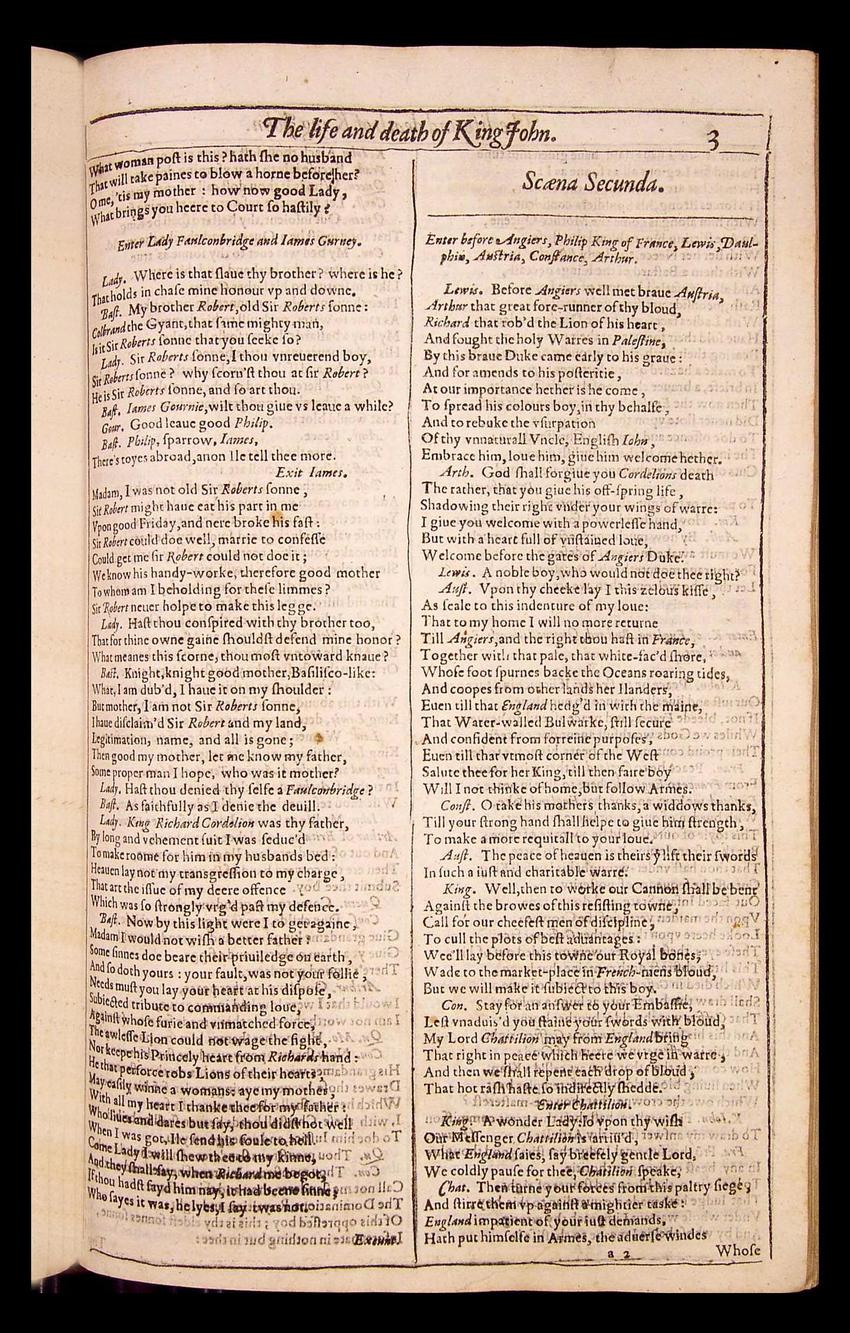 The life and death of King John.
3
What woman post is this? hath she no husband
That will take paines to blow a horne before her?
O me, 'tis my mother : how now good Lady,
What brings you heere to Court so hastily ?
Enter Lady Faulconbridge and Iames Gurney.
Lady. Where is that slaue thy brother? where is he?
That holds in chase mine honour vp and downe.
Bast. My brother Robert, old Sir Roberts sonne:
Colbrand the Gyant, that same mighty man,
Is it Sir Roberts sonne that you seeke so?
Lady. Sir Roberts sonne, I thou vnreuerend boy,
Sir Roberts sonne? why scorn'st thou at sir Robert?
He is Sir Roberts sonne, and so art thou.
Bast. Iames Gournie, wilt thou giue vs leaue a while?
Gour. Good leaue good Philip.
Bast. Philip, sparrow, Iames,
There's toyes abroad, anon Ile tell thee more.
Exit Iames.
Madam, I was not old Sir Roberts sonne,
Sir Robert might haue eat his part in me
Vpon good Friday, and nere broke his fast :
Sir Robert could doe well, marrie to confesse
Could get me sir Robert could not doe it ;
We know his handy-worke, therefore good mother
To whom am I beholding for these limmes?
Sir Robert neuer holpe to make this legge.
Lady. Hast thou conspired with thy brother too,
That for thine owne gaine shouldst defend mine honor?
What meanes this scorne, thou most vntoward knaue?
Bast. Knight, knight good mother, Basilisco-like:
What, I am dub'd, I haue it on my shoulder :
But mother, I am not Sir Roberts sonne,
I haue disclaim'd Sir Robert and my land,
Legitimation, name, and all is gone ;
Then good my mother, let me know my father,
Some proper man I hope, who was it mother?
Lady. Hast thou denied thy selfe a Faulconbridge?
Bast. As faithfully as I denie the deuill.
Lady. King Richard Cordelion was thy father,
By long and vehement suit I was seduc'd
To make roome for him in my husbands bed :
Heauen lay not my transgression to my charge,
That art the issue of my deere offence
Which was so strongly vrg'd past my defence.
Bast. Now by this light were I to get againe,
Madam I would not wish a better father :
Some sinnes doe beare their priuiledge on earth,
And so doth yours : your fault, was not your follie,
Needs must you lay your heart at his dispose,
Subiected tribute to commanding loue,
Against whose furie and vnmatched force,
The awlesse Lion could not wage the fight,
Nor keepe his Princely heart from Richards hand :
He that perforce robs Lions of their hearts,
May easily winne a womans: aye my mother,
With all my heart I thanke thee for my father :
Who liues and dares but say, thou didst not well
When I was got, Ile send his soule to hell.
Come Lady I will shew thee to my kinne,
And they shall say, when Richard me begot,
If thou hadst sayd him nay, it had beene sinne;
Who sayes it was, he lyes, I say twas not.
Exeunt.
Scæna Secunda.
Enter before Angiers, Philip King of France, Lewis, Daul-
phin, Austria, Constance, Arthur.
Lewis. Before Angiers well met braue Austria,
Arthur that great fore-runner of thy bloud,
Richard that rob'd the Lion of his heart,
And fought the holy Warres in Palestine,
By this braue Duke came early to his graue :
And for amends to his posteritie,
At our importance hether is he come,
To spread his colours boy, in thy behalfe,
And to rebuke the vsurpation
Of thy vnnaturall Vncle, English Iohn,
Embrace him, loue him, giue him welcome hether.
Arth. God shall forgiue you Cordelions death
The rather, that you giue his off-spring life,
Shadowing their right vnder your wings of warre:
I giue you welcome with a powerlesse hand,
But with a heart full of vnstained loue,
Welcome before the gates of Angiers Duke.
Lewis. A noble boy, who would not doe thee right?
Aust. Vpon thy cheeke lay I this zelous kisse,
As seale to this indenture of my loue:
That to my home I will no more returne
Till Angiers, and the right thou hast in France,
Together with that pale, that white-fac'd shore,
Whose foot spurnes backe the Oceans roaring tides,
And coopes from other lands her Ilanders,
Euen till that England hedg'd in with the maine,
That Water-walled Bulwarke, still secure
And confident from forreine purposes,
Euen till that vtmost corner of the West
Salute thee for her King, till then faire boy
Will I not thinke of home, but follow Armes.
Const. O take his mothers thanks, a widdows thanks,
Till your strong hand shall helpe to giue him strength,
To make a more requitall to your loue.
Aust. The peace of heauen is theirs yͭ lift their swords
In such a iust and charitable warre.
King. Well, then to worke our Cannon shall be bent
Against the browes of this resisting towne,
Call for our cheefest men of discipline,
To cull the plots of best aduantages :
Wee'll lay before this towne our Royal bones,
Wade to the market-place in French-mens bloud,
But we will make it subiect to this boy.
Con. Stay for an answer to your Embassie,
Lest vnaduis'd you staine your swords with bloud,
My Lord Chattilion may from England bring
That right in peace which heere we vrge in warre,
And then we shall repent each drop of bloud,
That hot rash haste so indirectly shedde.
Enter Chattilion.
King. A wonder Lady: lo vpon thy wish
Our Messenger Chattilion is arriu'd,
What England saies, say breefely gentle Lord,
We coldly pause for thee, Chatilion speake,
Chat. Then turne your forces from this paltry siege,
And stirre them vp against a mightier taske :
England impatient of your iust demands,
Hath put himselfe in Armes, the aduerse windes
a 2
Whose